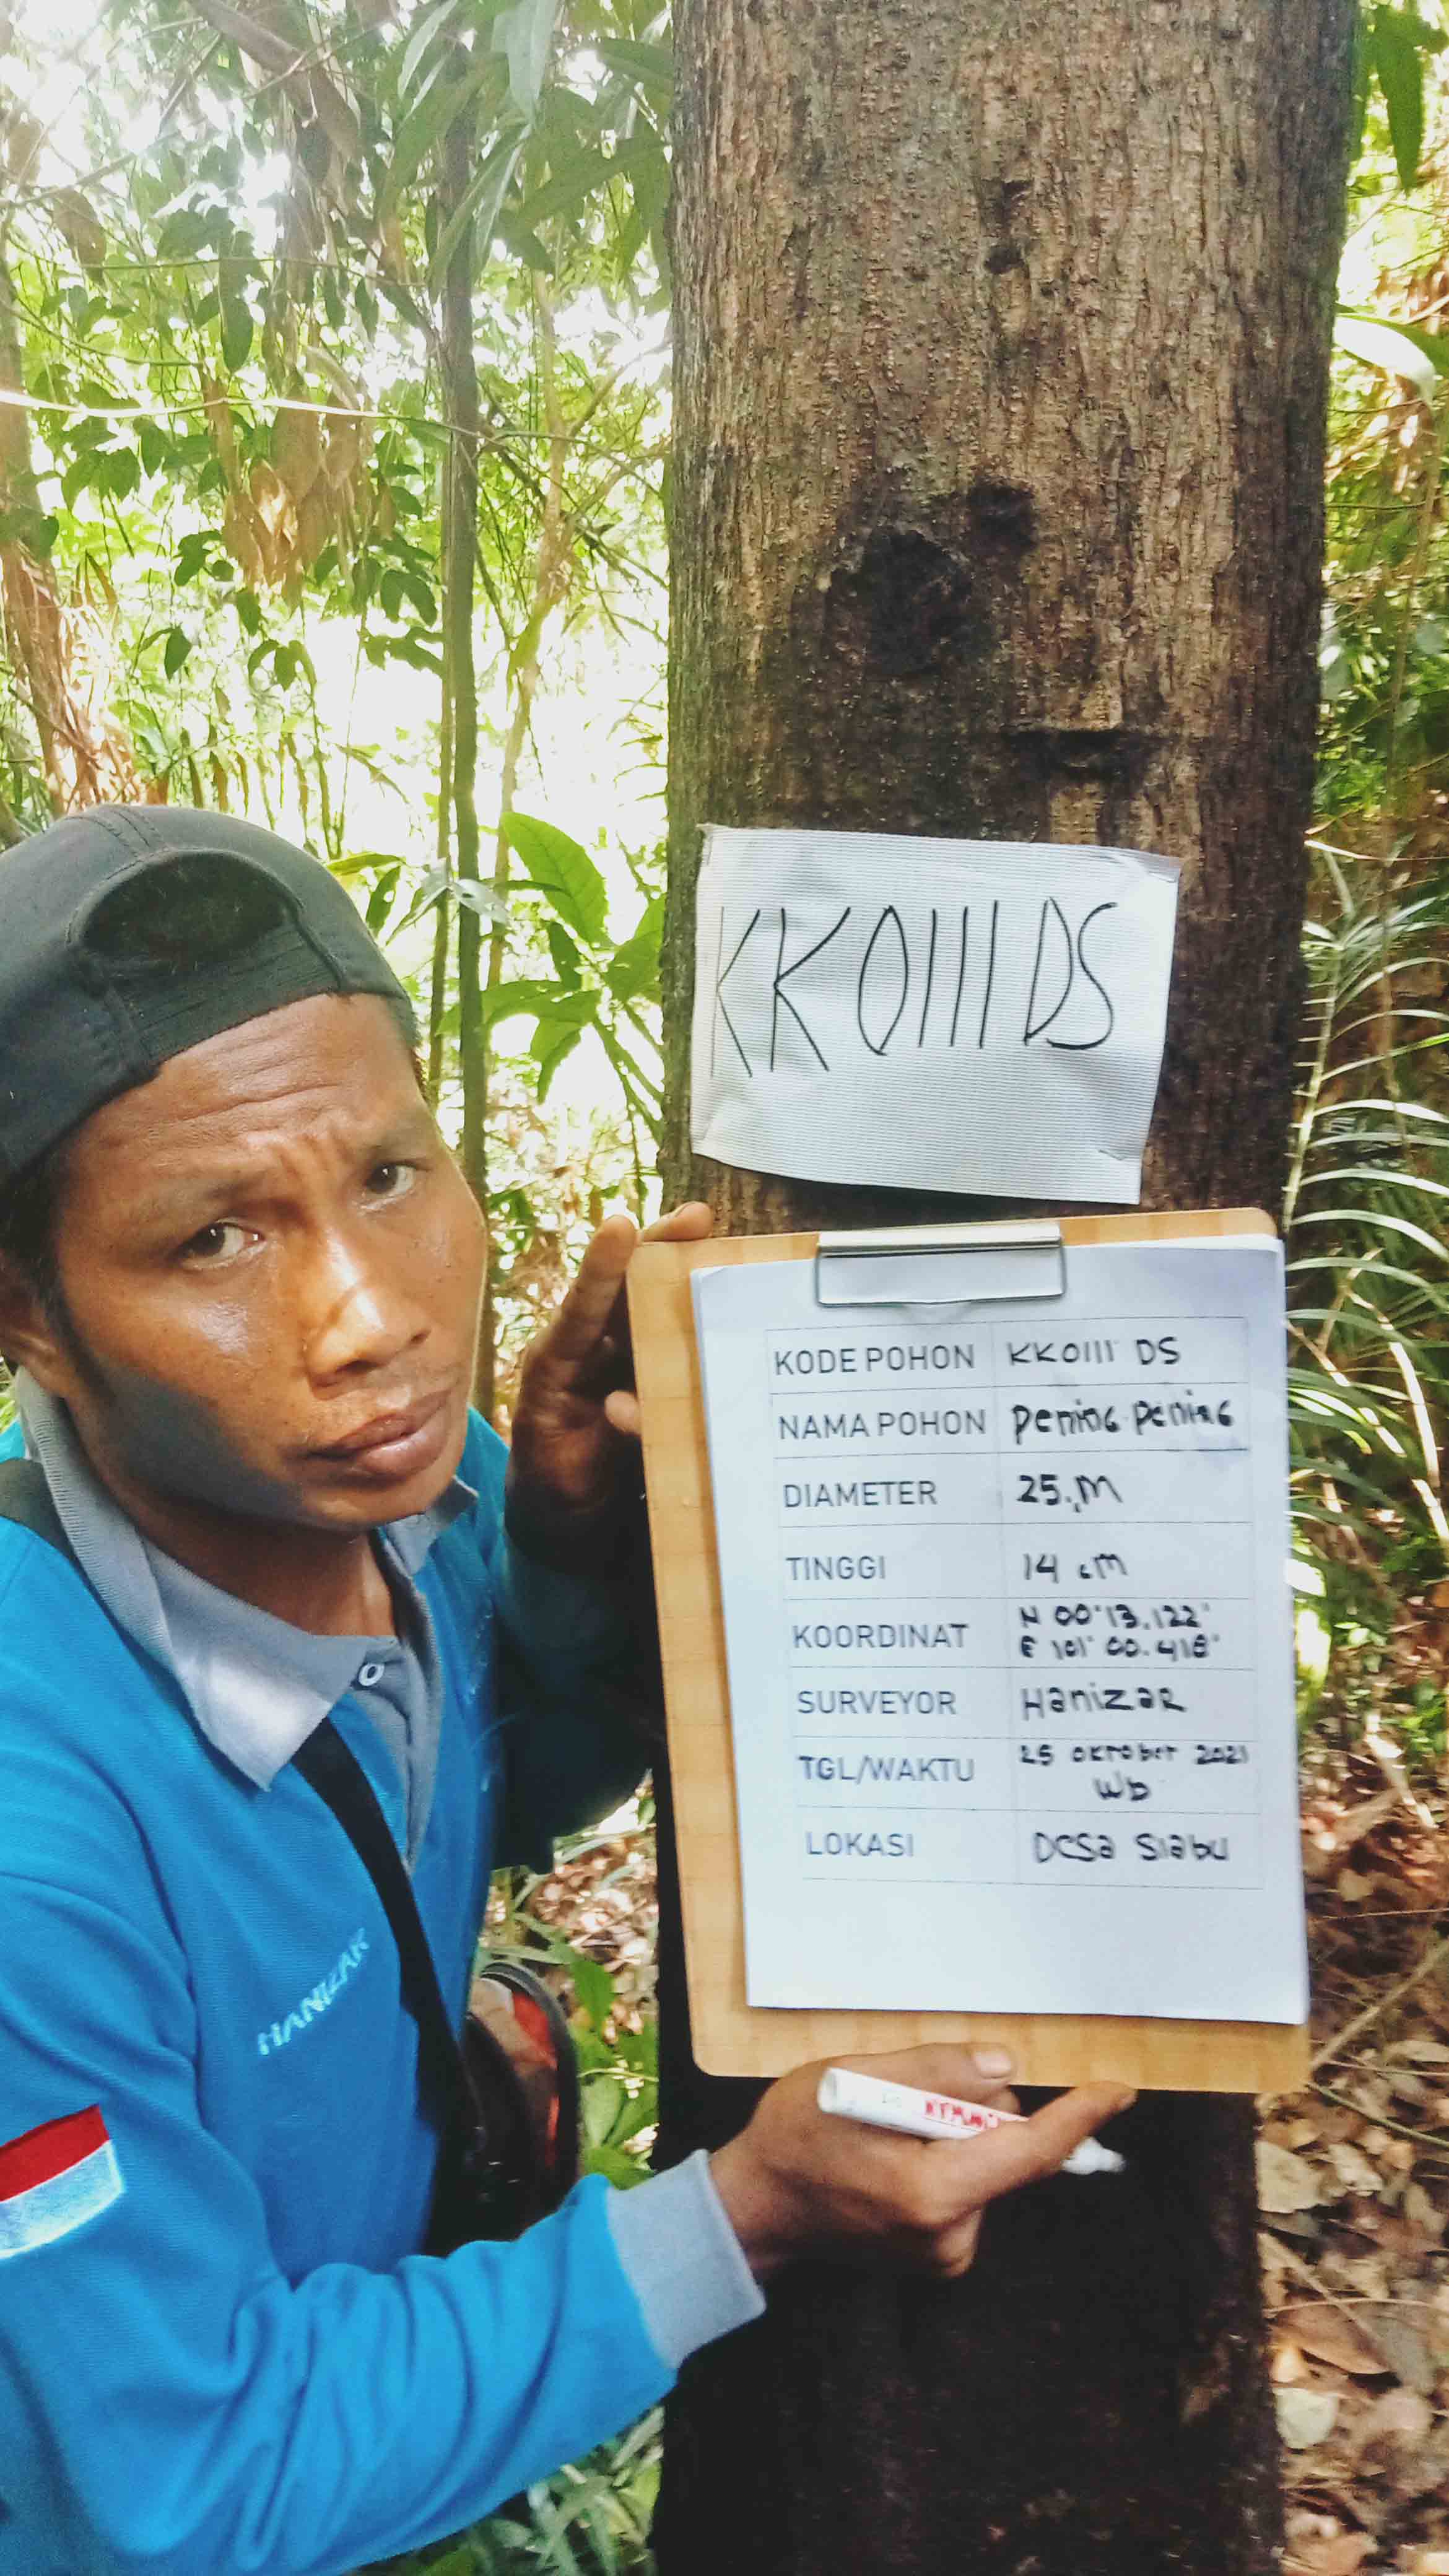 KK0111 DS
KODE POHON KK0111 DS
NAMA POHON Pening-Pening
DIAMETER 25.M
TINGGI 14 cM
KOORDINAT N 00°13.122'
E 101° 00.418'
SURVEYOR Hanizar
TGL/WAKTU 25 oktober 2021
Wb
LOKASI Desa Siabu
HANIZAR